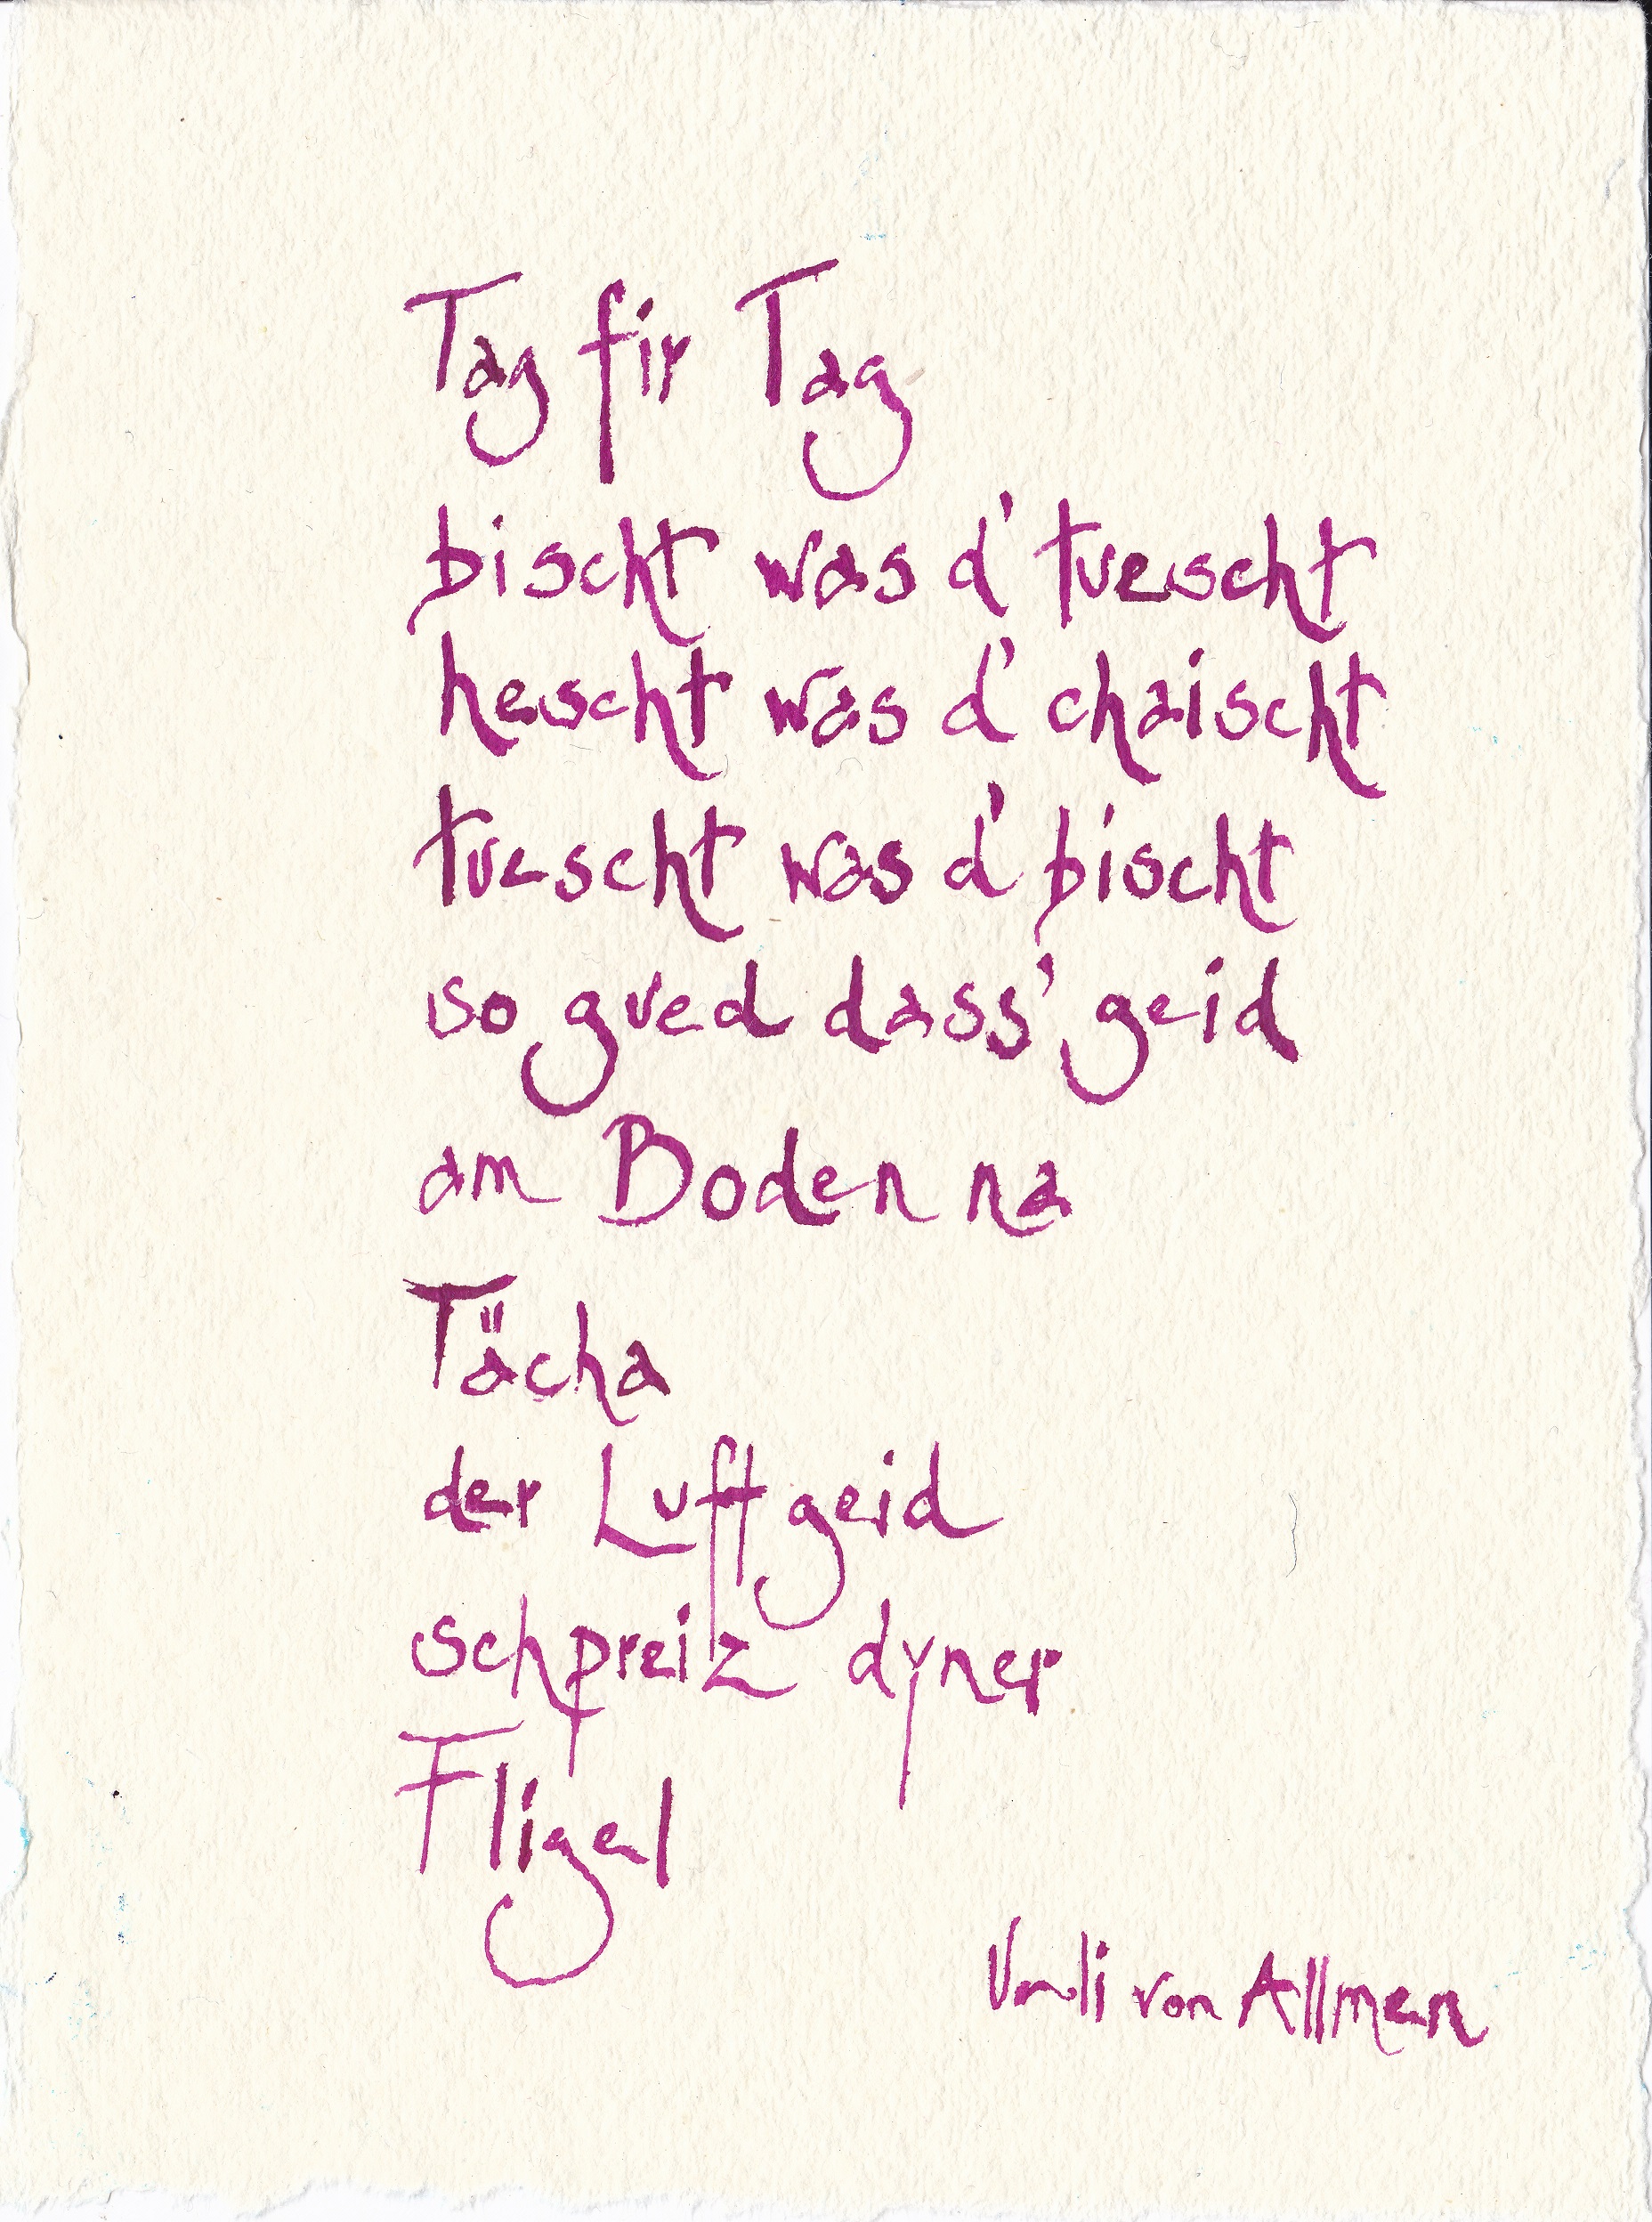 Tag fir Tag
bischt was d' tuescht
hescht was d' chaischt
tuescht was d' bischt
so gued dass' geid
am Boden na
Tächa
der Luft geid
schpreiz dyner
Fligel
von Allmen